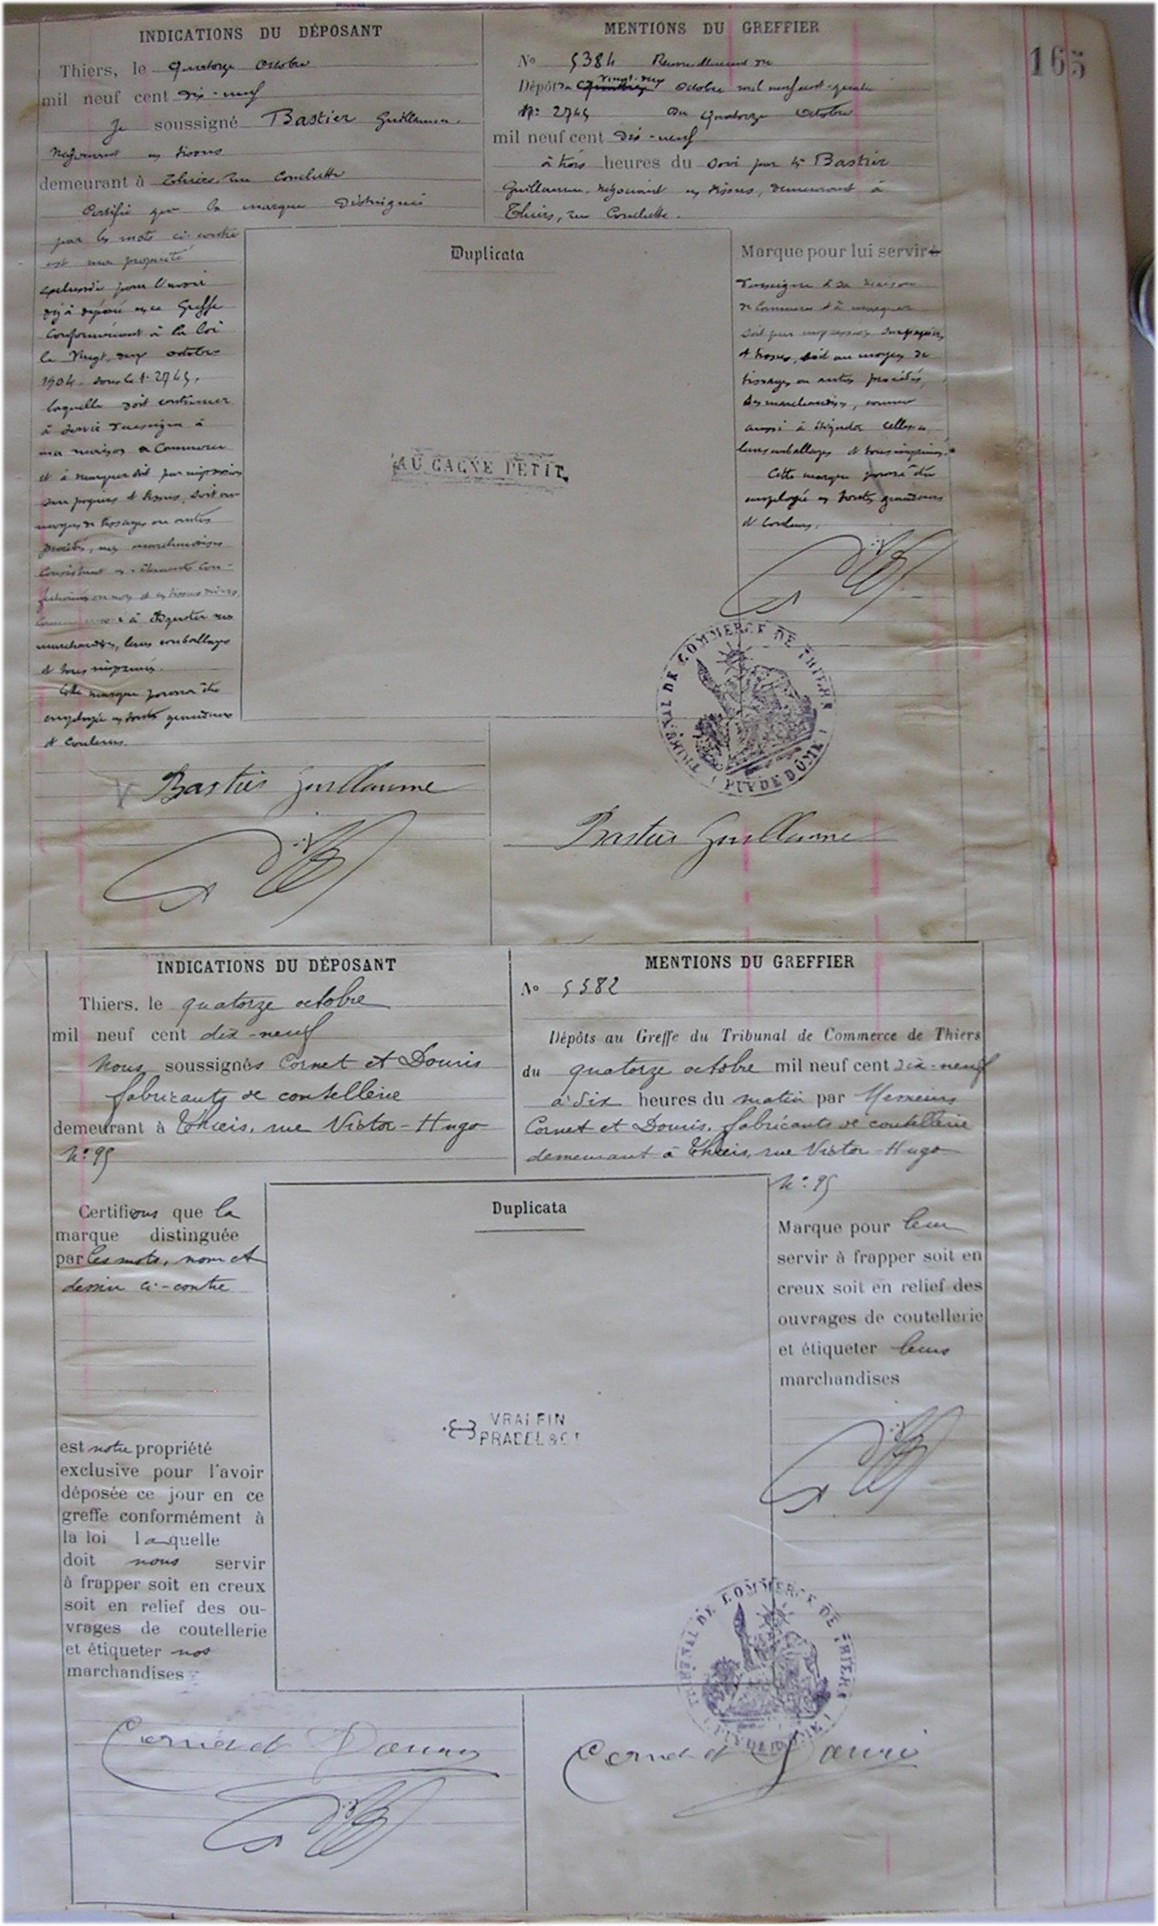 165
INDICATIONS DU DÉPOSANT
Thiers, le quatorze octobre
mil neuf cent dix-neuf
Je soussigné Bastier Guillaume
négociant en tissus
demeurant à Thiers, rue Conchette
Certifie que la marque distinguée
par les mots ci-contre
est ma propriété
exclusive pour l'avoir
déjà déposée en ce Greffe
conformément à la loi
le vingt-deux octobre
1904 sous le N° 2745,
laquelle doit continuer
à servir d'enseigne à
ma maison de Commerce
et à marquer soit par impression
sur papiers et tissus, soit au
moyen de tissages ou autres
procédés, mes marchandises
consistant en vêtements con-
à étiqueter mes
marchandises, leurs emballages
et tous imprimés.
Cette marque pourra être
employée en toutes grandeurs
et couleurs.
Bastier Guillaume
MENTIONS DU GREFFIER
No 5384 Renouvellement du
Dépôt du vingt-deux octobre mil neuf cent quatre
N° 2745 Du quatorze octobre
mil neuf cent dix-neuf
à trois heures du soir par Mr Bastier
Guillaume, négociant en tissus, demeurant à
Thiers, rue Conchette.
Duplicata
AU GAGNE PETIT
Marque pour lui servir
d'enseigne à sa maison
de Commerce et à marquer
soit par impression sur papiers
et tissus, soit au moyen de
tissages ou autres procédés,
ses marchandises, comme
aussi à étiqueter celles-ci
leurs emballages et tous imprimés.
Cette marque pourra être
employée en toutes grandeurs
et couleurs.
TRIBUNAL DE COMMERCE DE THIERS
PUY DE DÔME
Bastier Guillaume
INDICATIONS DU DÉPOSANT
Thiers, le quatorze octobre
mil neuf cent dix-neuf
Nous soussignés Cornet et Douris
fabricants de coutellerie
demeurant à Thiers, rue Victor-Hugo
N° 95
Certifions que la
marque distinguée
par les mots, nom et
dessin ci-contre
est notre propriété
exclusive pour l'avoir
déposée ce jour en ce
greffe conformément à
la loi laquelle
doit nous servir
à frapper soit en creux
soit en relief des ou-
vrages de coutellerie
et étiqueter nos
marchandises
Cornet et Douris
MENTIONS DU GREFFIER
No 5582
Dépôts au Greffe du Tribunal de Commerce de Thiers
du quatorze octobre mil neuf cent dix-neuf
à dix heures du matin par Messieurs
Cornet et Douris, fabricants de coutellerie
demeurant à Thiers, rue Victor-Hugo
N° 95
Duplicata
VRAI FIN
PRADEL & Cie
Marque pour leur
servir à frapper soit en
creux soit en relief des
ouvrages de coutellerie
et étiqueter leurs
marchandises
TRIBUNAL DE COMMERCE DE THIERS
PUY DE DÔME
Cornet et Douris